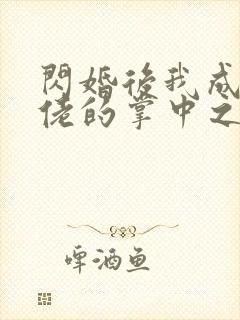 閃婚後我成
佬的掌中之
啤酒鱼